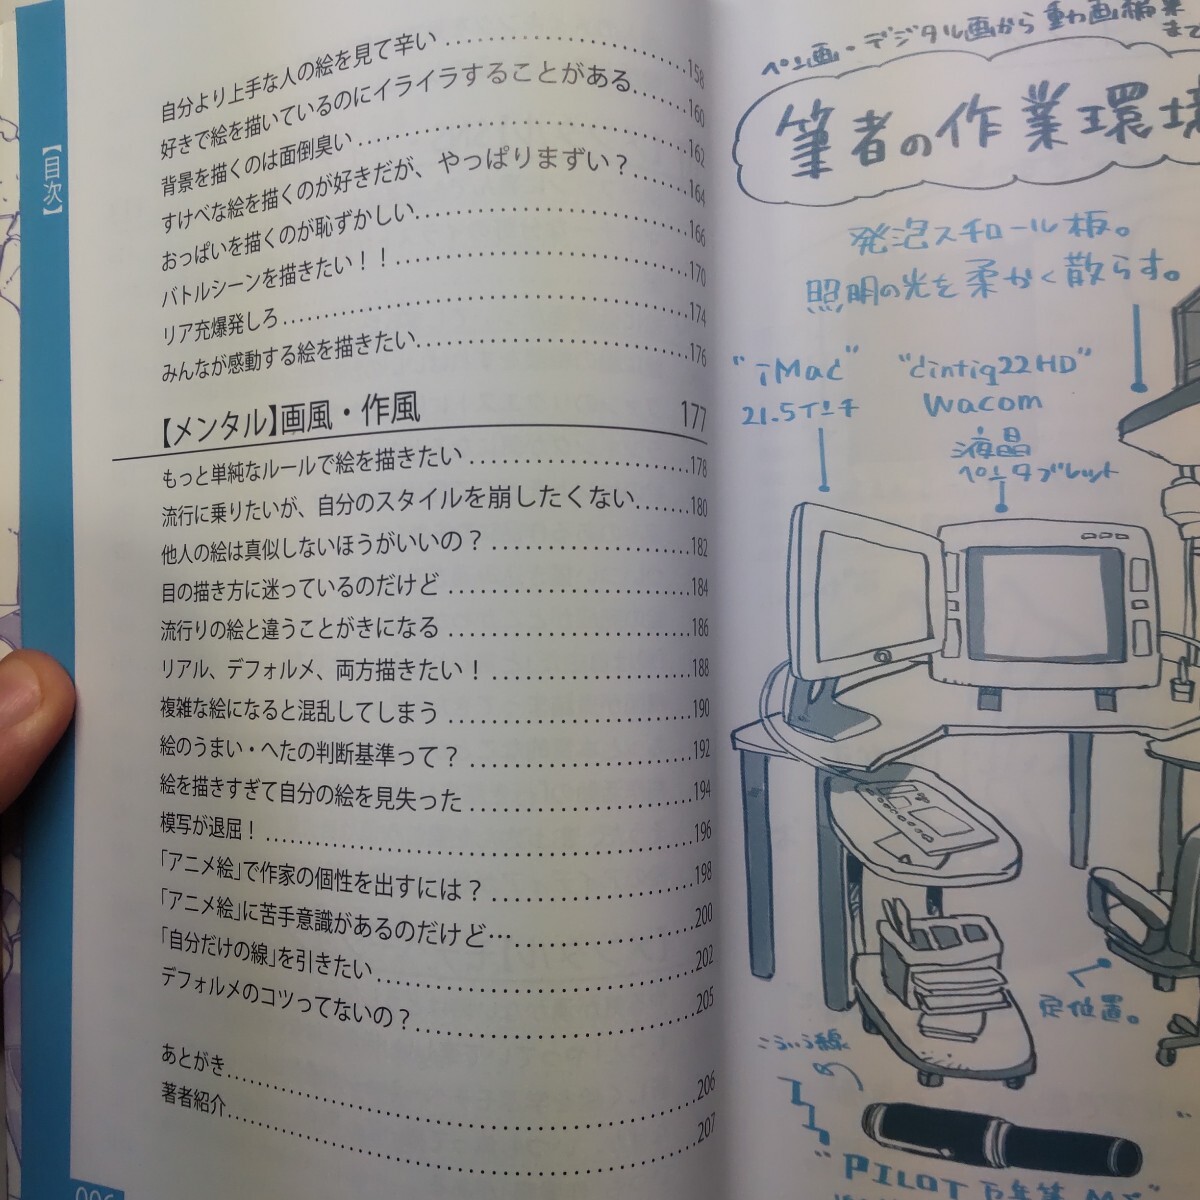 【目次】
自分より上手な人の絵を見て辛い……158
好きで絵を描いているのにイライラすることがある……160
背景を描くのは面倒臭い……162
すけべな絵を描くのが好きだが、やっぱりまずい？……164
おっぱいを描くのが恥ずかしい……166
バトルシーンを描きたい！！……170
リア充爆発しろ……174
みんなが感動する絵を描きたい……176
【メンタル】画風・作風 177
もっと単純なルールで絵を描きたい……178
流行に乗りたいが、自分のスタイルを崩したくない……180
他人の絵は真似しないほうがいいの？……182
目の描き方に迷っているのだけど……184
流行りの絵と違うことがきになる……186
リアル、デフォルメ、両方描きたい！……188
複雑な絵になると混乱してしまう……190
絵のうまい・へたの判断基準って？……192
絵を描きすぎて自分の絵を見失った……194
模写が退屈！……196
「アニメ絵」で作家の個性を出すには？……198
「アニメ絵」に苦手意識があるのだけど………200
「自分だけの線」を引きたい……202
デフォルメのコツってないの？……205
あとがき……206
著者紹介……207
ペン画・デジタル画から動画編集
まで
筆者の作業環境
発泡スチロール板。
照明の光を柔かく散らす。
"iMac"
21.5インチ
"cintiq22HD"
wacom
液晶
ペンタブレット
定位置。
こういう線
"PILOT 万年筆